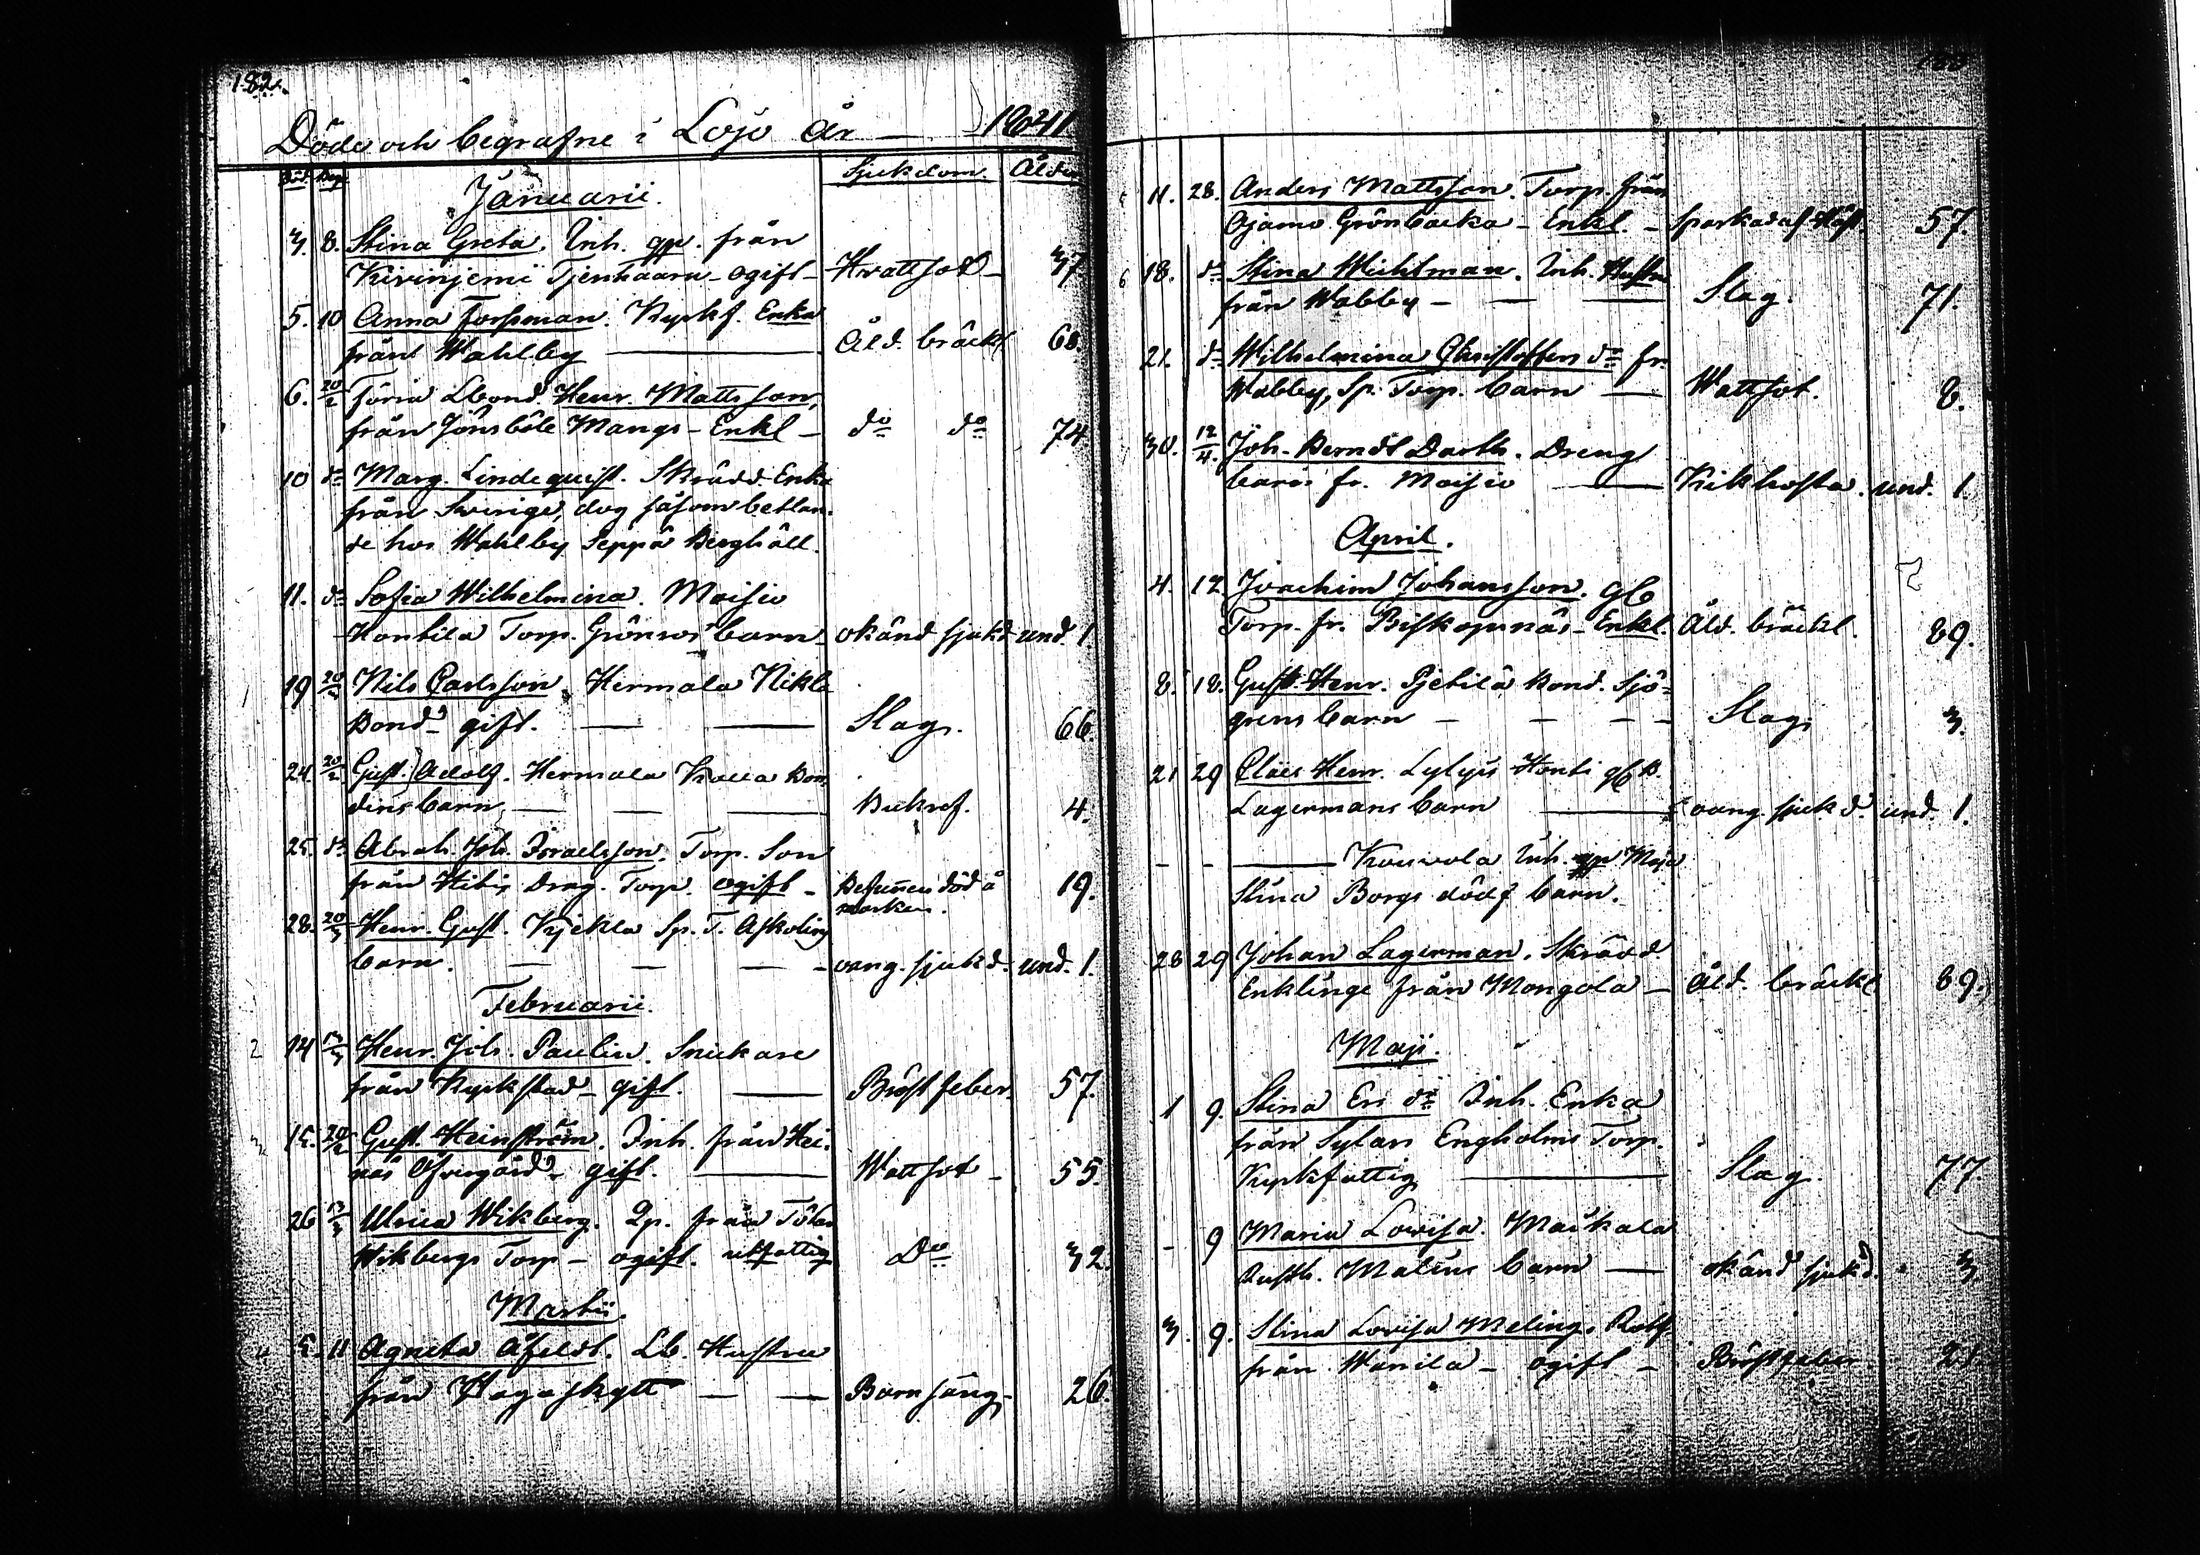 182.
Döde och begrafne i Lojo År — 1841
Död. Begr. Sjukdom. Ålder
Januarii.
3. 8. Stina Greta. Inh. qp. från
Kirinjemi Tjenhaaru - ogift - Wattsot - 37
5. 10 Anna Forsman. Kyrkf. Enka
från Wahlby — Åld. bräckl 68.
6. 20/2 Förra Lbond. Henr. Mattsson,
från Jönsböle Mangs - Enkl - do do 74
10 do Marg. Lindequist. Skrädd. Enka
från Sverige, dog såsom betlan-
de hos Wahlby Seppä Berghäll.
11. do Sofia Wilhelmina. Moisio
Hontila Torp. Grönroos barn - okänd sjukd und. 1.
19 20/2 Nils Carlsson. Hermala Nikla
Bond. gift. — — Slag. 66.
24. 20/2 Gust. Adolf. Hermala Bon-
dens barn — — — Bukref. 4.
25. do Abrah. Joh. Israelsson. Torp. Son
från Hiitis Drag. Torp. ogift - Befunnen död å
marken. 19.
28. 20/3 Henr. Gust. Kjekla Sp. T. Askolins
barn. — — — ovang. sjukd. und. 1.
Februarii.
2 14 13/3 Henr. Joh. Paulin. Snickare
från Kyrkstad - gift. — Bröstfeber. 57.
3 15. 20/2 Gust. Heinström. Inh. från Hei-
näs Öfvergård - gift. — Wattsot - 55.
26 13/3 Ulrica Wikberg. Qp. från
Wikbergs Torp - ogift. utfattig Do 32.
Martii.
4 5. 11 Agneta Åfeldt. Lb. Hustru
från Hagaskytt — — Barnsäng - 26.
5 11. 28. Anders Mattsson. Torp. från
Ojamo Grönbacka - Enkl. - Sparkad af Häst. 57.
6 18. do Stina Wichtman. Inh. Hustru
från Wabby — — — Slag. 71.
21. do Wilhelmina Christoffers dr fr.
Wabby, Sp. Torp. barn — Wattsot. 8.
30. 12/4. Joh. Berndt Darth. Dreng
barn fr. Moisio — Kikhosta. und. 1.
April.
4. 12 Joachim Johansson. gb
Torp. fr. Biskopsnäs - Enkl. Åld. bräckl. 89.
8. 18. Gust. Henr. Pjetilä Bond. Sjö-
grens barn — — — Slag 3.
21 29 Claes Henr. Lylyis Honti gb B.
Lagermans barn — ovang. sjukd. und. 1.
- - — Kouvola Inh. qp Maja
Stina Borgs dödf barn.
28 29 Johan Lagerman. Skrädd
Enklinge från Mongola - Åld. bräckl 89.
Maji.
1 9. Stina Ers dr Inh. Enka
från Sytars Engholms Torp.
Kyrkfattig — Slag. 77.
- 9 Maria Lovisa. Maikala
Rusth. Malins barn — okänd sjukd. 3.
3. 9. Stina Lovisa Meling.
från Wanila - ogift - Bröstfeber 21.